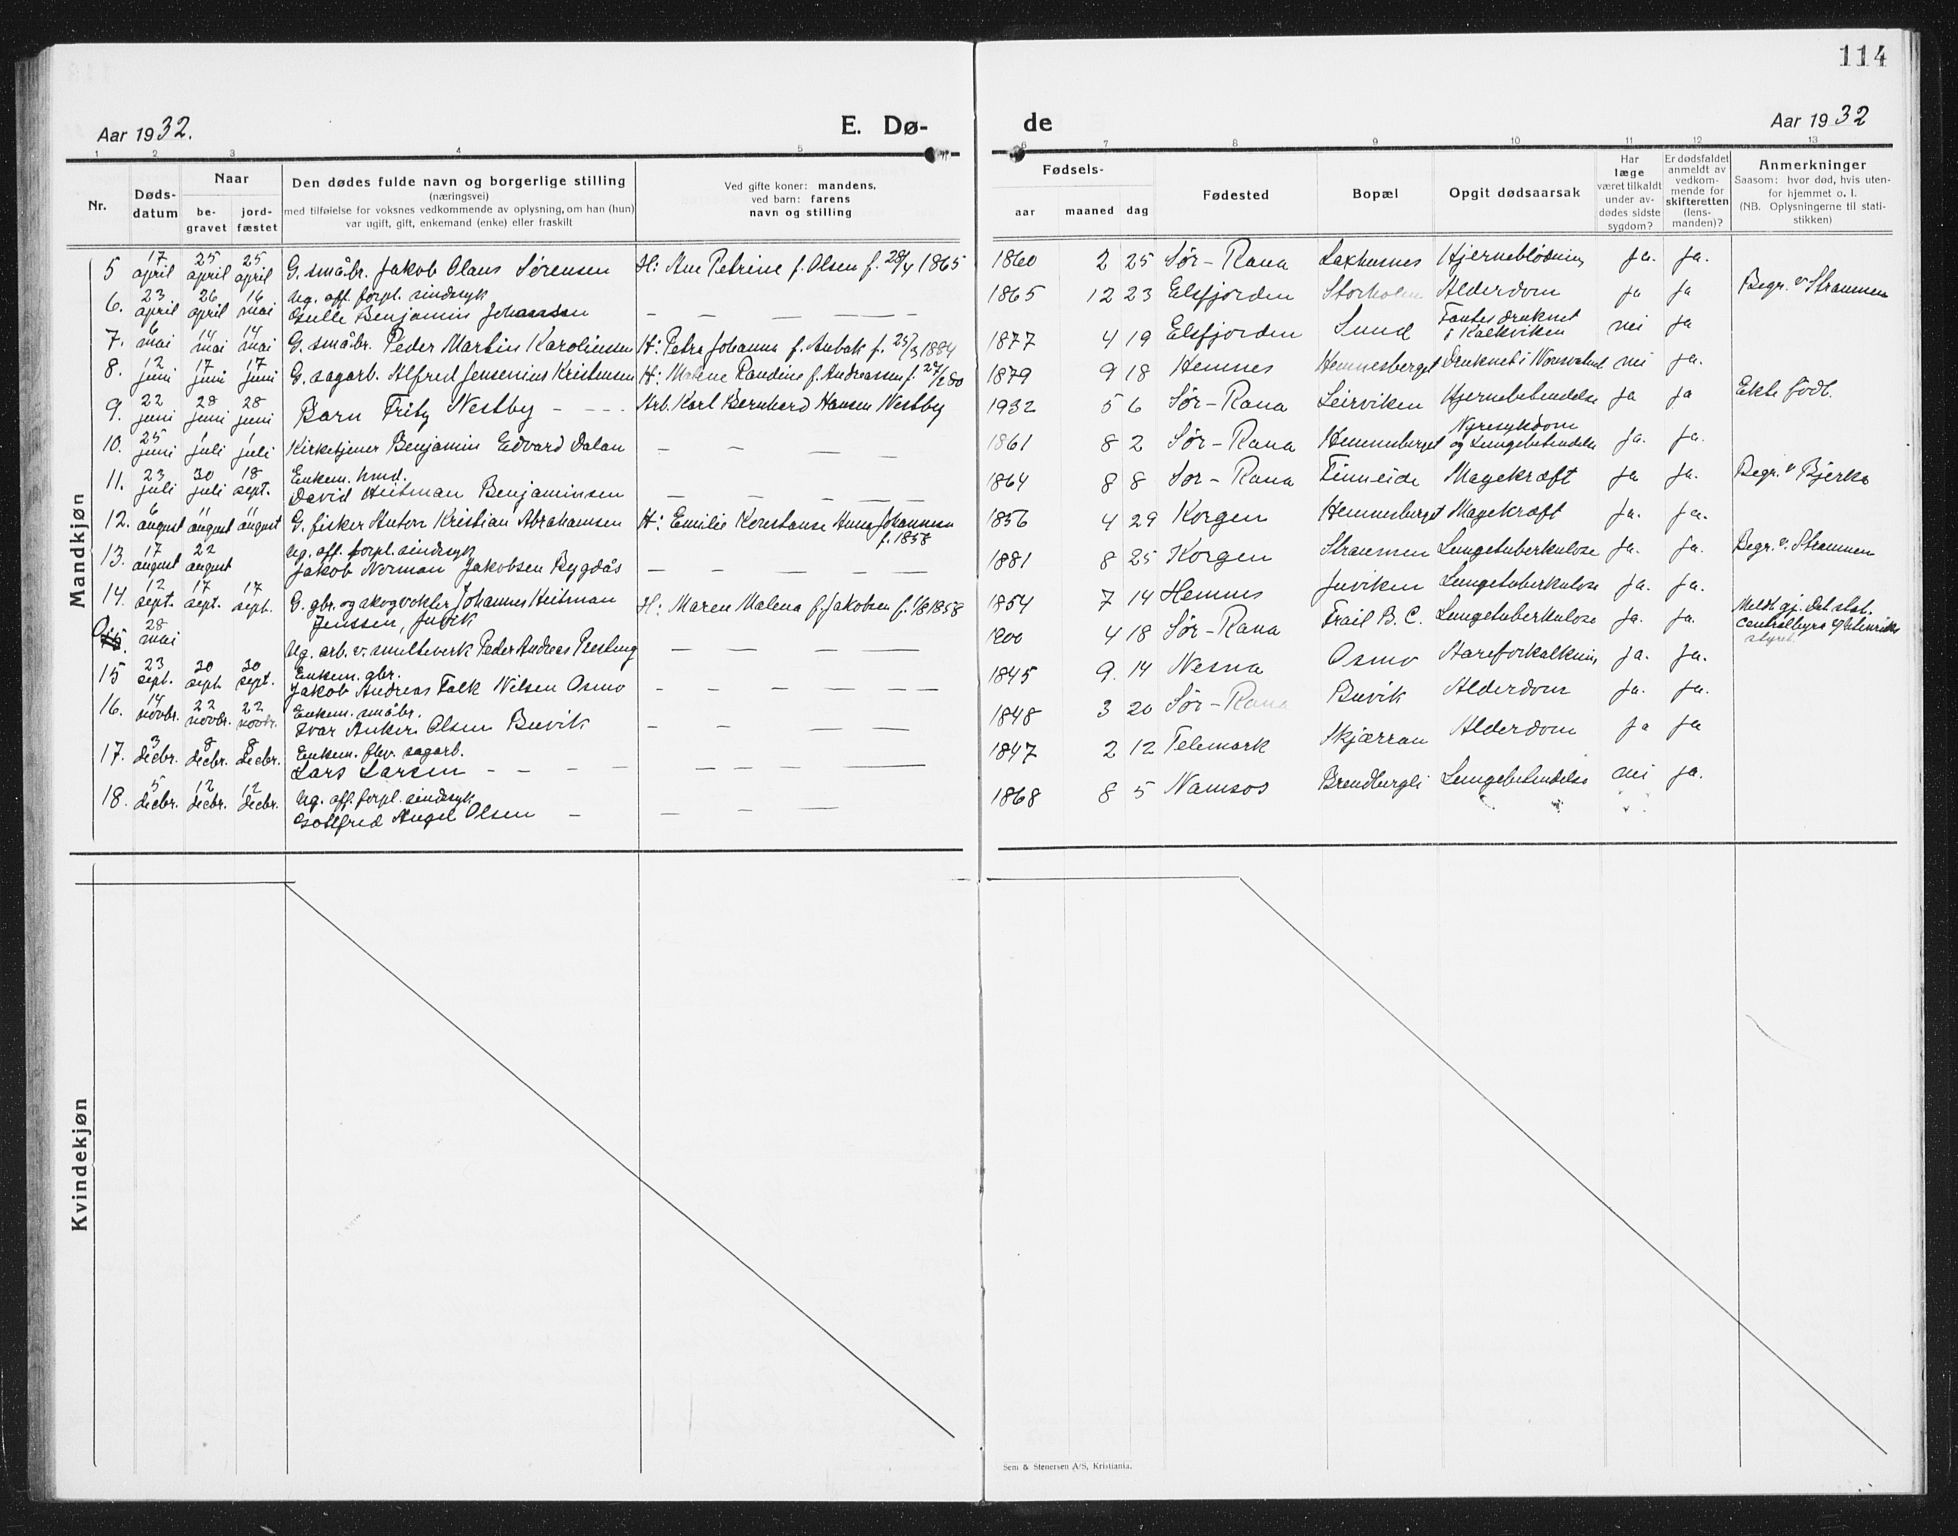 114
Aar 1932. E. Dø- de Aar 1932
1 2 3 4 5 6 7 8 9 10 11 12 13
Nr. Døds-datum Naar be-gravet jord-fæstet Den dødes fulde navn og borgerlige stilling (næringsvei) med tilføielse for voksnes vedkommende av oplysning, om han (hun) var ugift, gift, enkemand (enke) eller fraskilt Ved gifte koner: mandens, ved barn: farens navn og stilling Fødsels- aar maaned dag Fødested Bopæl Opgit dødsaarsak Har læge været tilkaldt under av-dødes sidste sygdom? Er dødsfaldet anmeldt av vedkom-mende for skifteretten (lens-manden)? Anmerkninger Saasom: hvor død, hvis uten-for hjemmet o. l. (NB. Oplysningerne til stati-stikken)
Mandkjøn
5 17 april 25 april 25 april G. småbr. Jakob Olaus Sørensen H: Ane Petrine f. Olsen f. 28/4 1865 1860 2 25 Sør-Rana Laxhusnes Hjerneblødning ja. ja.
6. 23 april 26 april 16 mai Ug. off. forpl. sindssyk Benjamin Johanssen — — — — — 1865 12 23 Elsfjorden Storholm Alderdom ja ja Begr. v Straumen
7. 6 mai 14 mai 14 mai G. småbr. Peder Martin Karoliussen H: Petra Johanna f. Aubak f. 25/3 1884 1877 4 19 Elsfjorden Lund Fantes druknet i Kalkviken nei ja
8. 12 juni 17 juni 17 juni G. sagarb. Alfred Jensenius Kristensen H: Malene Randine f. Andreassen f. 27/2 80 1879 9 18 Hemnes Hemnesberget Druknet i nei ja.
9. 22 juni 28 juni 28 juni Barn Fritz Nestby - - - - Arb. Karl Bernhard Hansen Nestby 1932 5 6 Sør-Rana Leirviken Hjernebetendelse ja ja Ekte født.
10. 25 juni 1 juli 1 juli Kirketjener Benjamin Edvard Dalan — — — — 1861 8 2 Sør-Rana Hemnesberget Nyresykdom og Lungebetendelse ja. ja.
11. 23 juli 30 juli 18 sept. Enkem. kmd. David Heitman Benjaminsen — — — — — 1864 8 8 Sør-Rana Finneide Magekræft ja ja. Begr. v Bjerka
12. 6 august 11 august 11 august G. fisker Anton Kristian Abrahamsen H: Emilie Konstanse Anna Johannesen f. 1858 1856 4 29 Korgen Hemnesberget Magekræft ja. ja.
13. 17 august 22 august Ug. off. forpl. sindssyk Jakob Norman Jakobsen Bygdås — — — — — 1881 8 25 Korgen Straumen Lungetuberkulose ja. ja. Begr. v. Straumen
14. 12 sept. 17 sept. 17 sept. G. gbr. og skogvokter Johannes Heitman Jenssen, Juvik H: Maren Malena f. Jakobsen f. 1/8 1858 1854 7 14 Hemnes Juviken Lungetuberkulose ja. ja.
28 mai Ug. arb. v. smelteverk Peder Andreas Presteng — — — — — 1900 4 18 Sør-Rana Trail B. C. Lungetuberkulose ja. ja. Meldt gj. Det stat. Centralbyrå
15 23 sept. 30 sept. 30 sept. Enkem. gbr. Jakob Andreas Falk Nilsen Osmo - - — — — 1845 9. 14 Nesna Osmo Aareforkalkning ja. ja.
16. 14 novbr. 22 novbr. 22 novbr. Enkem. småbr. Ivar Ankers Olsen Buvik — — — — — 1848 3 20 Sør-Rana Buvik Alderdom ja. ja.
17. 3 decbr. 8 decbr. 8 decbr. Enkem. fhv. sagarb. Lars Larsen - - - - — — — — 1847 2 12 Telemark Skjærran Alderdom ja ja
18. 5 decbr. 12 decbr. 12 decbr. Ug. off. forpl. sindssyk Gottfred Angel Olsen - — - — 1868 8 5 Namsos Brendbergli Lungebetendelse nei ja.
Kvindekjøn
Sem & Stenersen A/S, Kristiania.